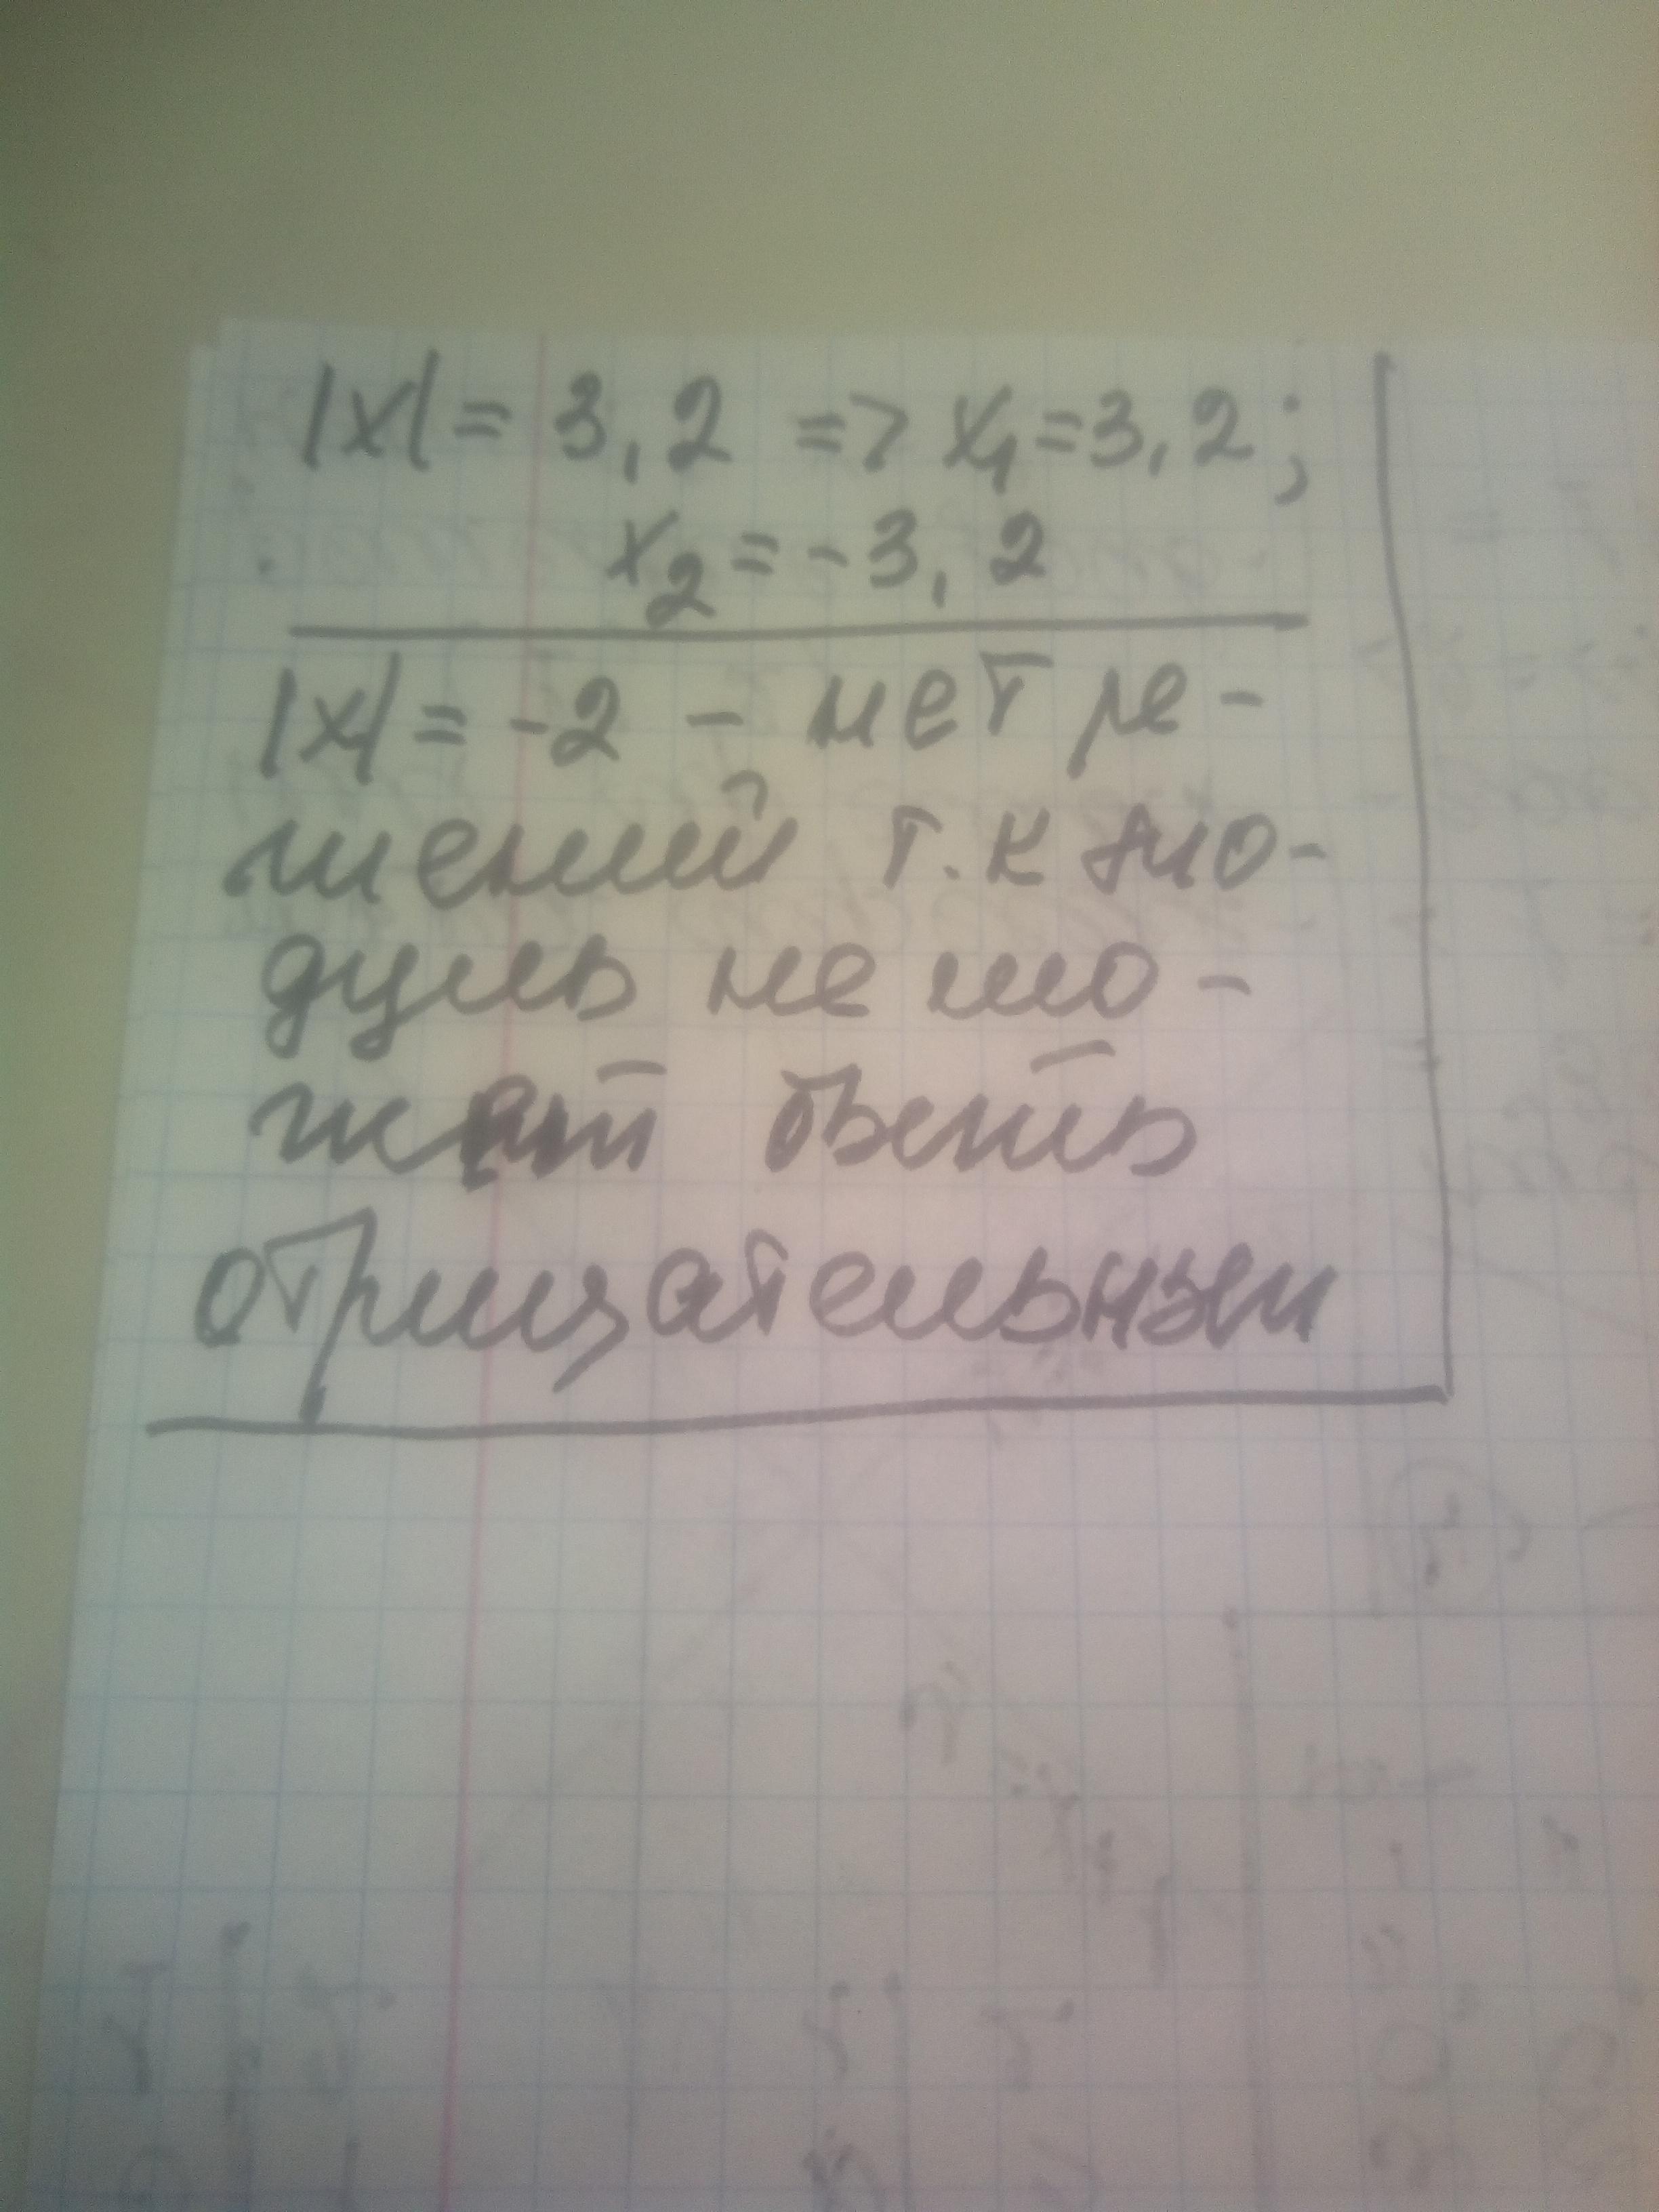 |x| = 3,2 => x₁ = 3,2;
x₂ = -3,2
|x| = -2 - нет ре-
шений т.к мо-
дуль не мо-
жет быть
отрицательным